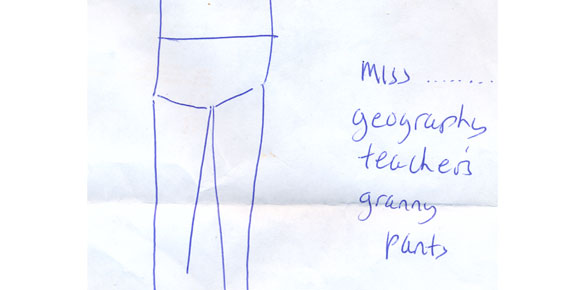 Miss ........
geography
teacher's
granny
pants